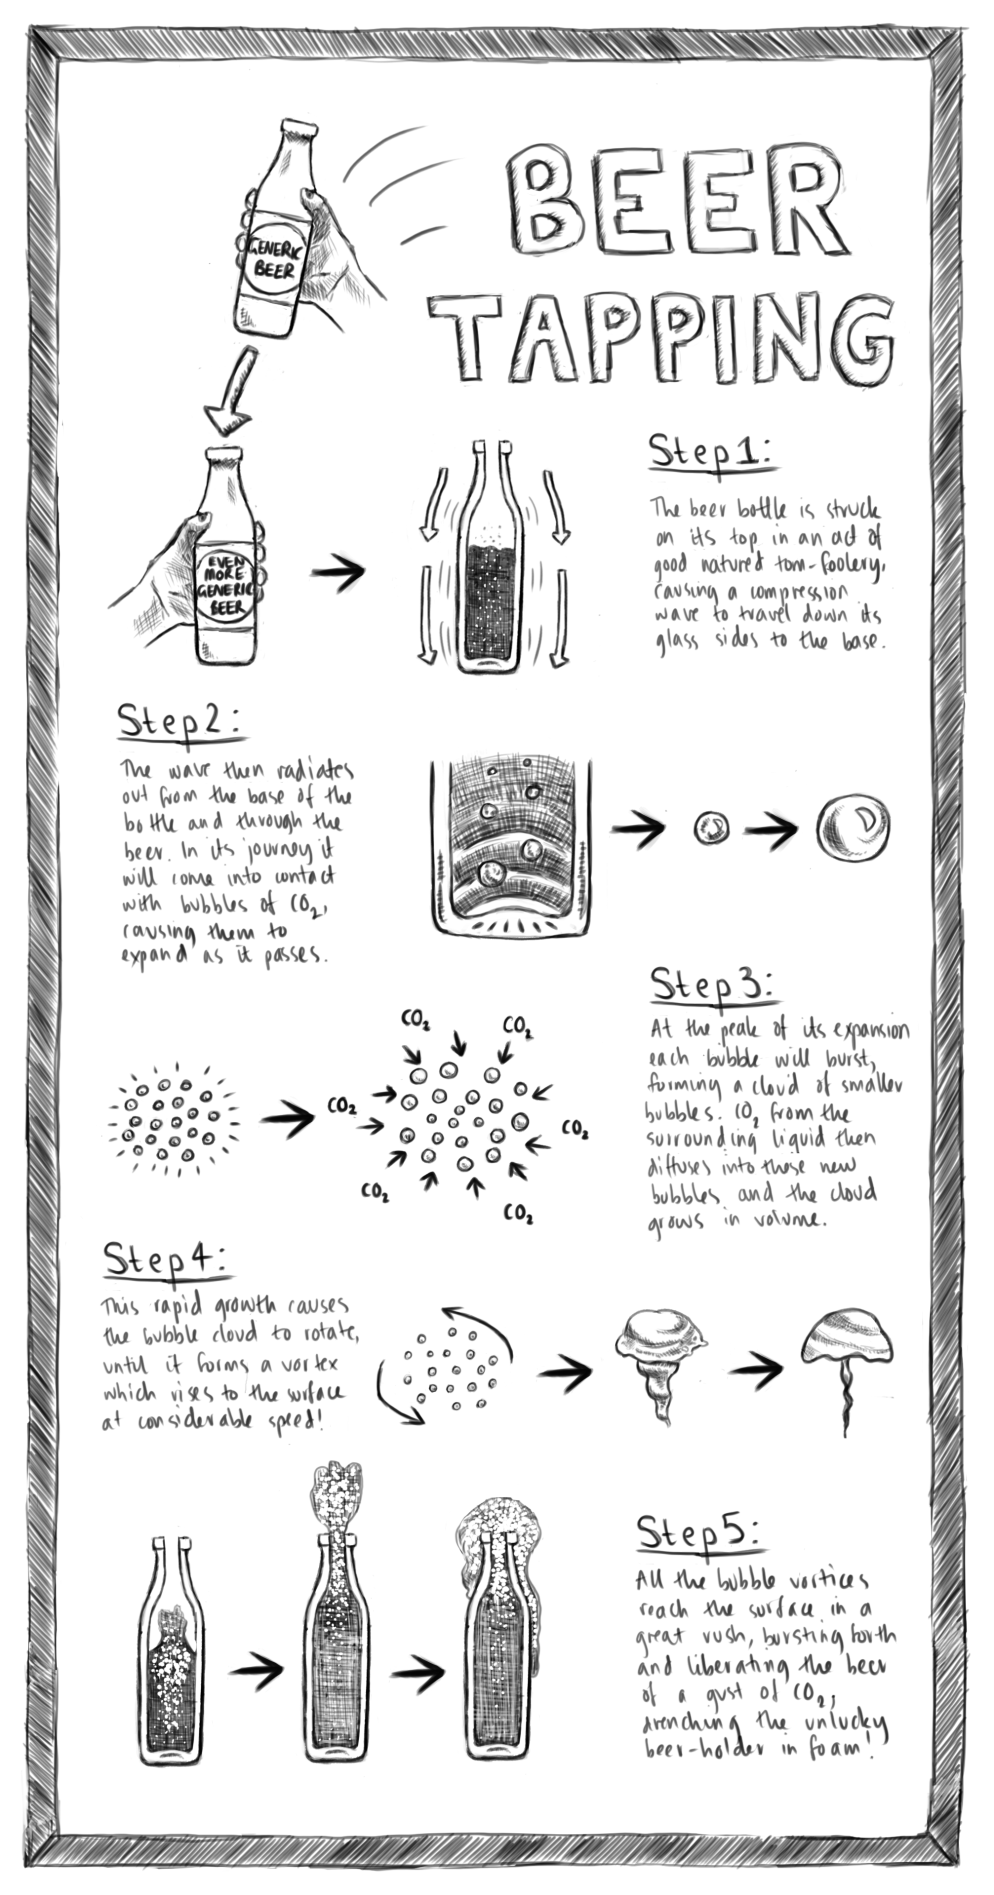 BEER
TAPPING
GENERIC
BEER
EVEN
MORE
GENERIC
BEER
Step 1:
The beer bottle is struck
on its top in an act of
good natured tom-foolery,
causing a compression
wave to travel down its
glass sides to the base.
Step 2:
The wave then radiates
out from the base of the
bottle and through the
beer. In its journey it
will come into contact
with bubbles of CO₂,
causing them to
expand as it passes.
Step 3:
At the peak of its expansion
each bubble will burst,
forming a cloud of smaller
bubbles. CO₂ from the
surrounding liquid then
diffuses into these new
bubbles and the cloud
grows in volume.
CO₂
CO₂
CO₂
CO₂
CO₂
CO₂
Step 4:
This rapid growth causes
the bubble cloud to rotate,
until it forms a vortex
which rises to the surface
at considerable speed!
Step 5:
All the bubble vortices
reach the surface in a
great rush, bursting forth
and liberating the beer
of a gust of CO₂,
drenching the unlucky
beer-holder in foam!